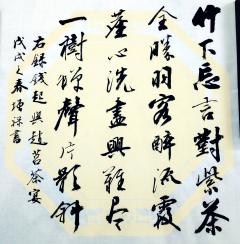 竹下忘言對紫茶
全勝羽客醉流霞
塵心洗盡興難尽
一樹蟬聲片影斜
右錄錢起與趙莒茶宴
戊戌之春